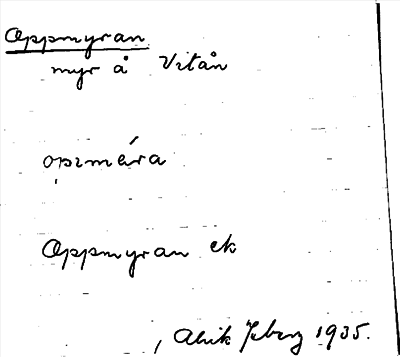 Oppmyran
myr å Vitån
opmära
Oppmyran ek
Alrik 1935.